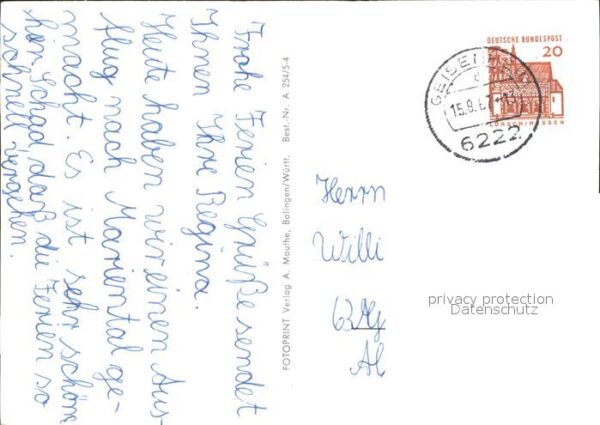 Frohe Ferien Grüße sendet
Ihnen Ihre Regina.
Heute haben wir einen Aus-
flug nach Mariental ge-
macht. Es ist sehr schön
hier. Schad daß die Ferien so
schnell vergehen.
FOTOPRINT Verlag A. Mauthe, Balingen/Württ. Best.-Nr. A 254/5-4
DEUTSCHE BUNDESPOST
20
LORSCH/HESSEN
15.8.67
6222
Herrn
Willi
63
Al
privacy protection
Datenschutz